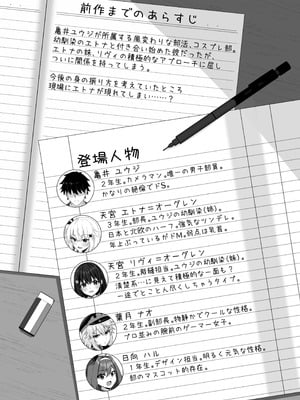 前作までのあらすじ
亀井ユウジが所属する風変わりな部活、コスプレ部。
幼馴染のエトナと付き合い始めた彼だったが、
エトナの妹、リヴィの積極的なアプローチに屈し
ついに関係を持ってしまう。
今後の身の振り方を考えていたところ
現場にエトナが現れてしまい……?
登場人物
亀井 ユウジ
2年生。カメラマン。唯一の男子部員。
かなりの絶倫でドS。
天宮 エトナ=オーグレン
3年生。部長。ユウジの幼馴染(姉)。
日本と北欧のハーフ。強気なツンデレ。
年上ぶっているがドM。弱点は乳首。
天宮 リヴィ=オーグレン
2年生。裁縫担当。ユウジの幼馴染(妹)。
清楚系に見えて積極的な一面も?
一途でとことん尽くしちゃうタイプ。
葉月 ナオ
2年生。副部長。物静かでクールな性格。
プロ並みの腕前のゲーマー女子。
日向 ハル
1年生。デザイン担当。明るく元気な性格。
部のマスコット的存在。